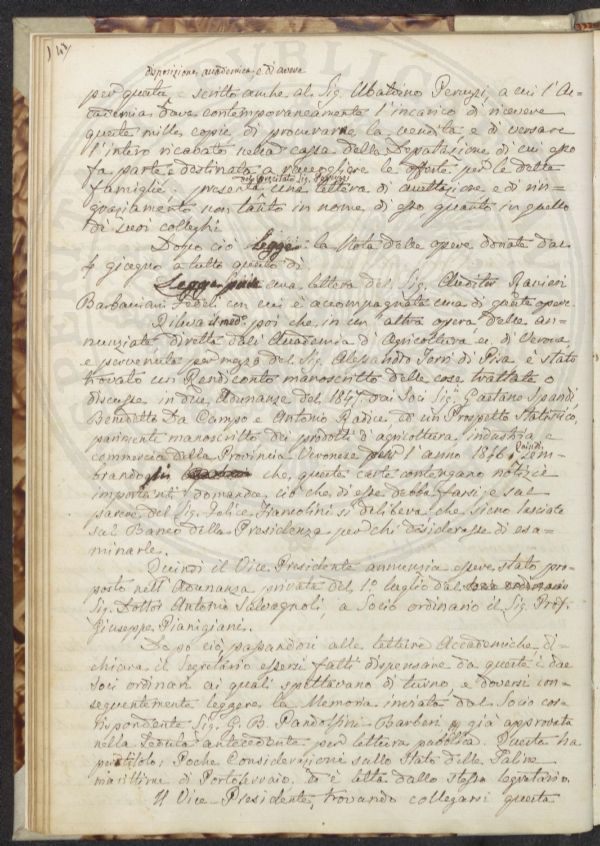 143
disposizione accademica, e di avere
per questa scritto anche al Sig. Ubaldino Peruzzi, a cui l'Ac=
cademia dava contemporaneamente l'incarico di ricevere
queste mille copie di procurarne la vendita e di versare
l'intero ricavato nella cassa della Deputazione di cui esso
fa parte e destinata a raccogliere le offerte per le dette
famiglie. presenta una lettera di accettazione e di rin=
graziamento non tanto in nome di esso quanto in quello
di suoi colleghi.
Dopo ciò legge la Nota delle opere donate dal
4 giugno a tutto questo dì
una lettera del Sig. Auditor Ranieri
Barbacciani Fedeli con cui è accompagnata una di queste opere.
Rileva il med.º poi che in un altra opera delle an=
nunziate diretta dall'Accademia di Agricoltura ec. di Verona,
e pervenuta per mezzo del Sig. Alessandro Torri di Pisa è stato
trovato un Rendiconto manoscritto delle cose trattate o
discusse in due Adunanze del 1847 dai Soci Sig.i Gaetano Spandri
Benedetto Da Campo e Antonio Radice, ed un Prospetto Statistico,
parimente manoscritto dei prodotti d'agricoltura, industria e
commercio della Provincia Veronese per l'anno 1846; Quindi sem=
brandogli che queste carte contengano notizie
importanti domanda ciò che di esse debba farsi, e sul
parere del Sig. Felice Francolini si delibera che sieno lasciate
sul Banco della Presidenza per chi desiderasse di esa=
minarle.
Quindi il Vice Presidente annunzia essere stato pro=
posto nell'Adunanza privata del 1.º luglio dal socio ordinario
Sig. Dottor Antonio Salvagnoli, a Socio ordinario il Sig. Prof.
Giuseppe Pianigiani.
Dopo ciò passandosi alle letture Accademiche di=
chiara il Segretario essersi fatti dispensare da queste i due
Soci ordinari ai quali spettavano di turno, e doversi con=
seguentemente leggere la Memoria inviata dal Socio cor=
rispondente Sig. G. B. Pandolfini-Barberi già approvata
nella seduta antecedente per lettura pubblica. Questa ha
per titolo: Poche Considerazioni sullo Stato delle Saline
marittime di Portoferraio. Ed è letta dallo stesso Segretario.
Il Vice-Presidente, trovando collegarsi questa